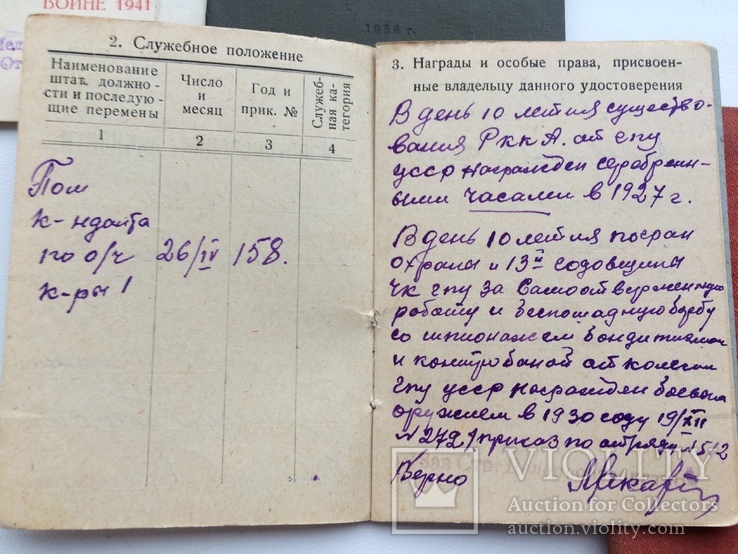 ВОЙНЕ 1941
1936 г.
2. Служебное положение
Наименование
штат. должно-
сти и последую-
щие перемены
Число
и
месяц
Год и
прик. №
Служеб-
ная ка-
тегория
1
2
3
4
Пом
к-нданта
по о/ч 26/IV 158.
к-ры 1
3. Награды и особые права, присвоен-
ные владельцу данного удостоверения
В день 10 летия существо-
вания РККА. от гпу
усср награжден серебрен-
ными часами в 1927 г.
В день 10 летия погран
охраны и 13й годовщины
чк гпу за самоотверженную
работу и беспощадную борьбу
со шпионажем бондитизмом
и контробаной от колегии
гпу усср награжден боевым
оружием в 1930 году 19/XII
N 272) приказ по отряду N 1512
Верно
VIOLITY
Auction for Collectors
auction.violity.com